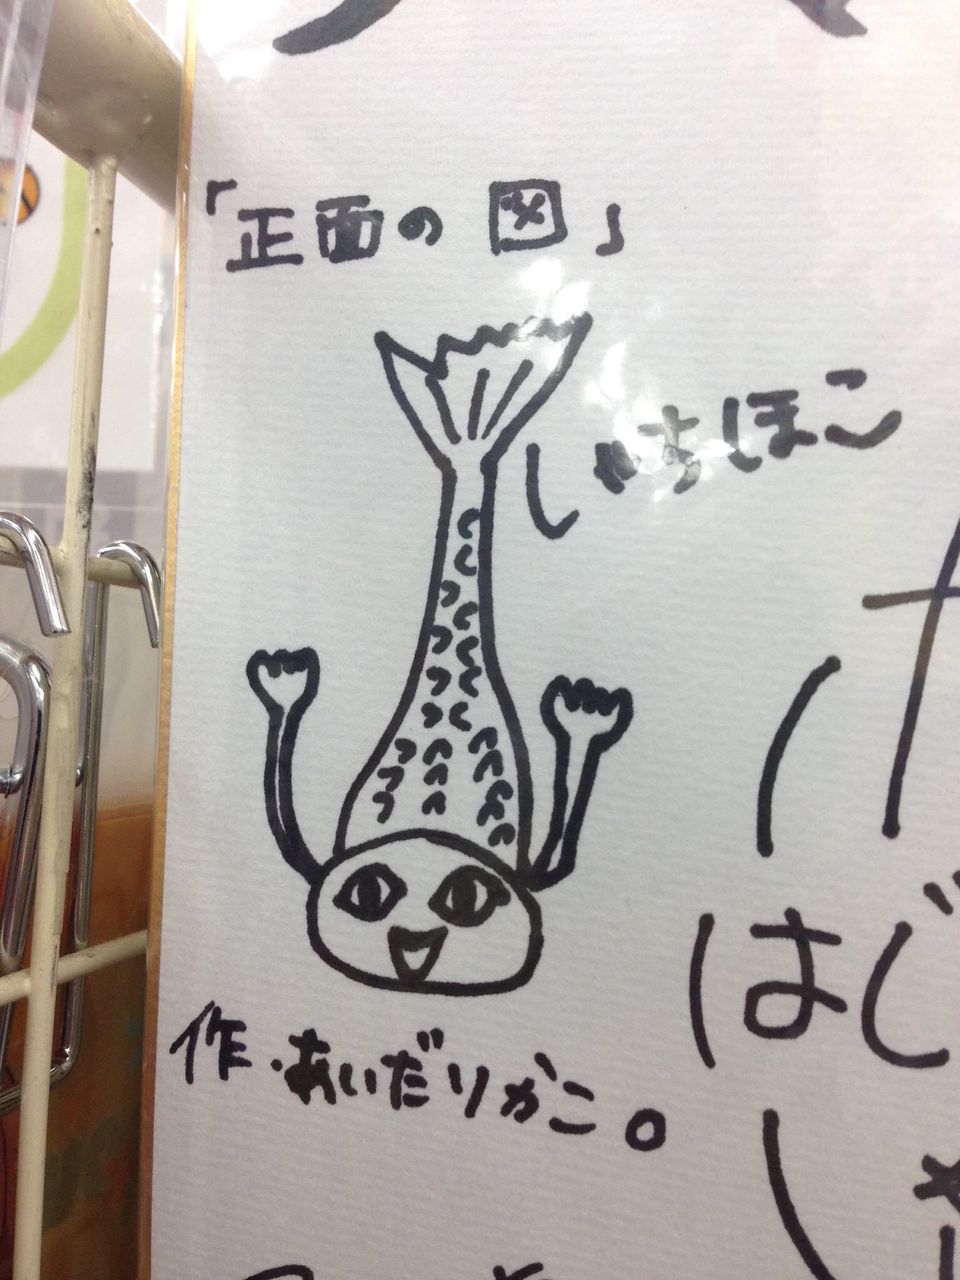 「正面の図」
しゃちほこ
はじ
作・あいだりかこ。